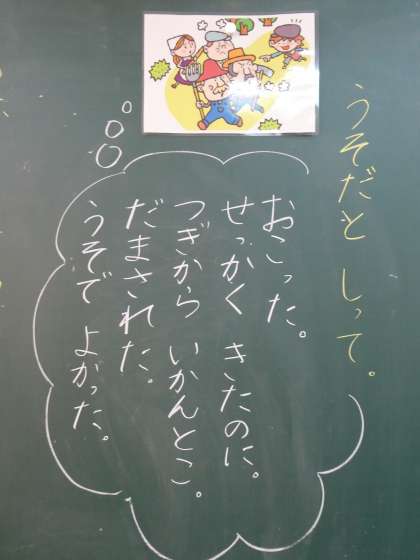 うそだと しって。
おこった。
せっかく きたのに。
つぎから いかんとこ。
だまされた。
うそで よかった。